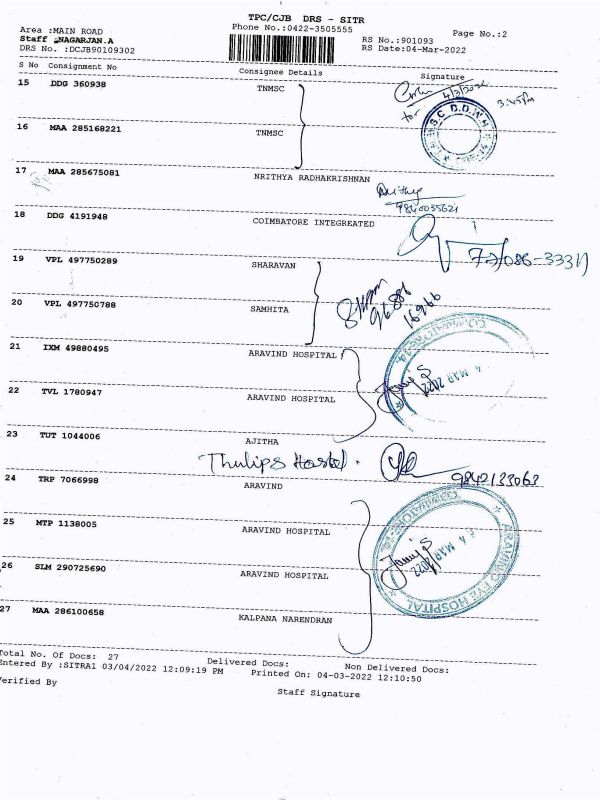 TPC/CJB DRS - SITR
Area :MAIN ROAD
Phone No.:0422-3505555
Page No.:2
Staff :NAGARJAN.A
RS No.:901093
DRS No. :DCJB90109302
RS Date:04-Mar-2022
S No Consignment No Consignee Details Signature
15 DDG 360938 TNMSC
4/3/2022
3:45 Pm
for
16 MAA 285168221 TNMSC
17 MAA 285675081 NRITHYA RADHAKRISHNAN
Nrithya
9840035621
18 DDG 4191948 COIMBATORE INTEGREATED
19 VPL 497750289 SHARAVAN
20 VPL 497750788 SAMHITA
96886
16966
21 IXM 49880495 ARAVIND HOSPITAL
COIMBATORE-14
4 MAR 2022
22 TVL 1780947 ARAVIND HOSPITAL
23 TUT 1044006 AJITHA
Thulips Hostel.
9842133063
24 TRP 7066998 ARAVIND
25 MTP 1138005 ARAVIND HOSPITAL
ARAVIND EYE HOSPITAL
COIMBATORE-14
4 MAR 2022
26 SLM 290725690 ARAVIND HOSPITAL
27 MAA 286100658 KALPANA NARENDRAN
Total No. Of Docs: 27 Delivered Docs: Non Delivered Docs:
Entered By :SITRA1 03/04/2022 12:09:19 PM Printed On: 04-03-2022 12:10:50
Verified By
Staff Signature